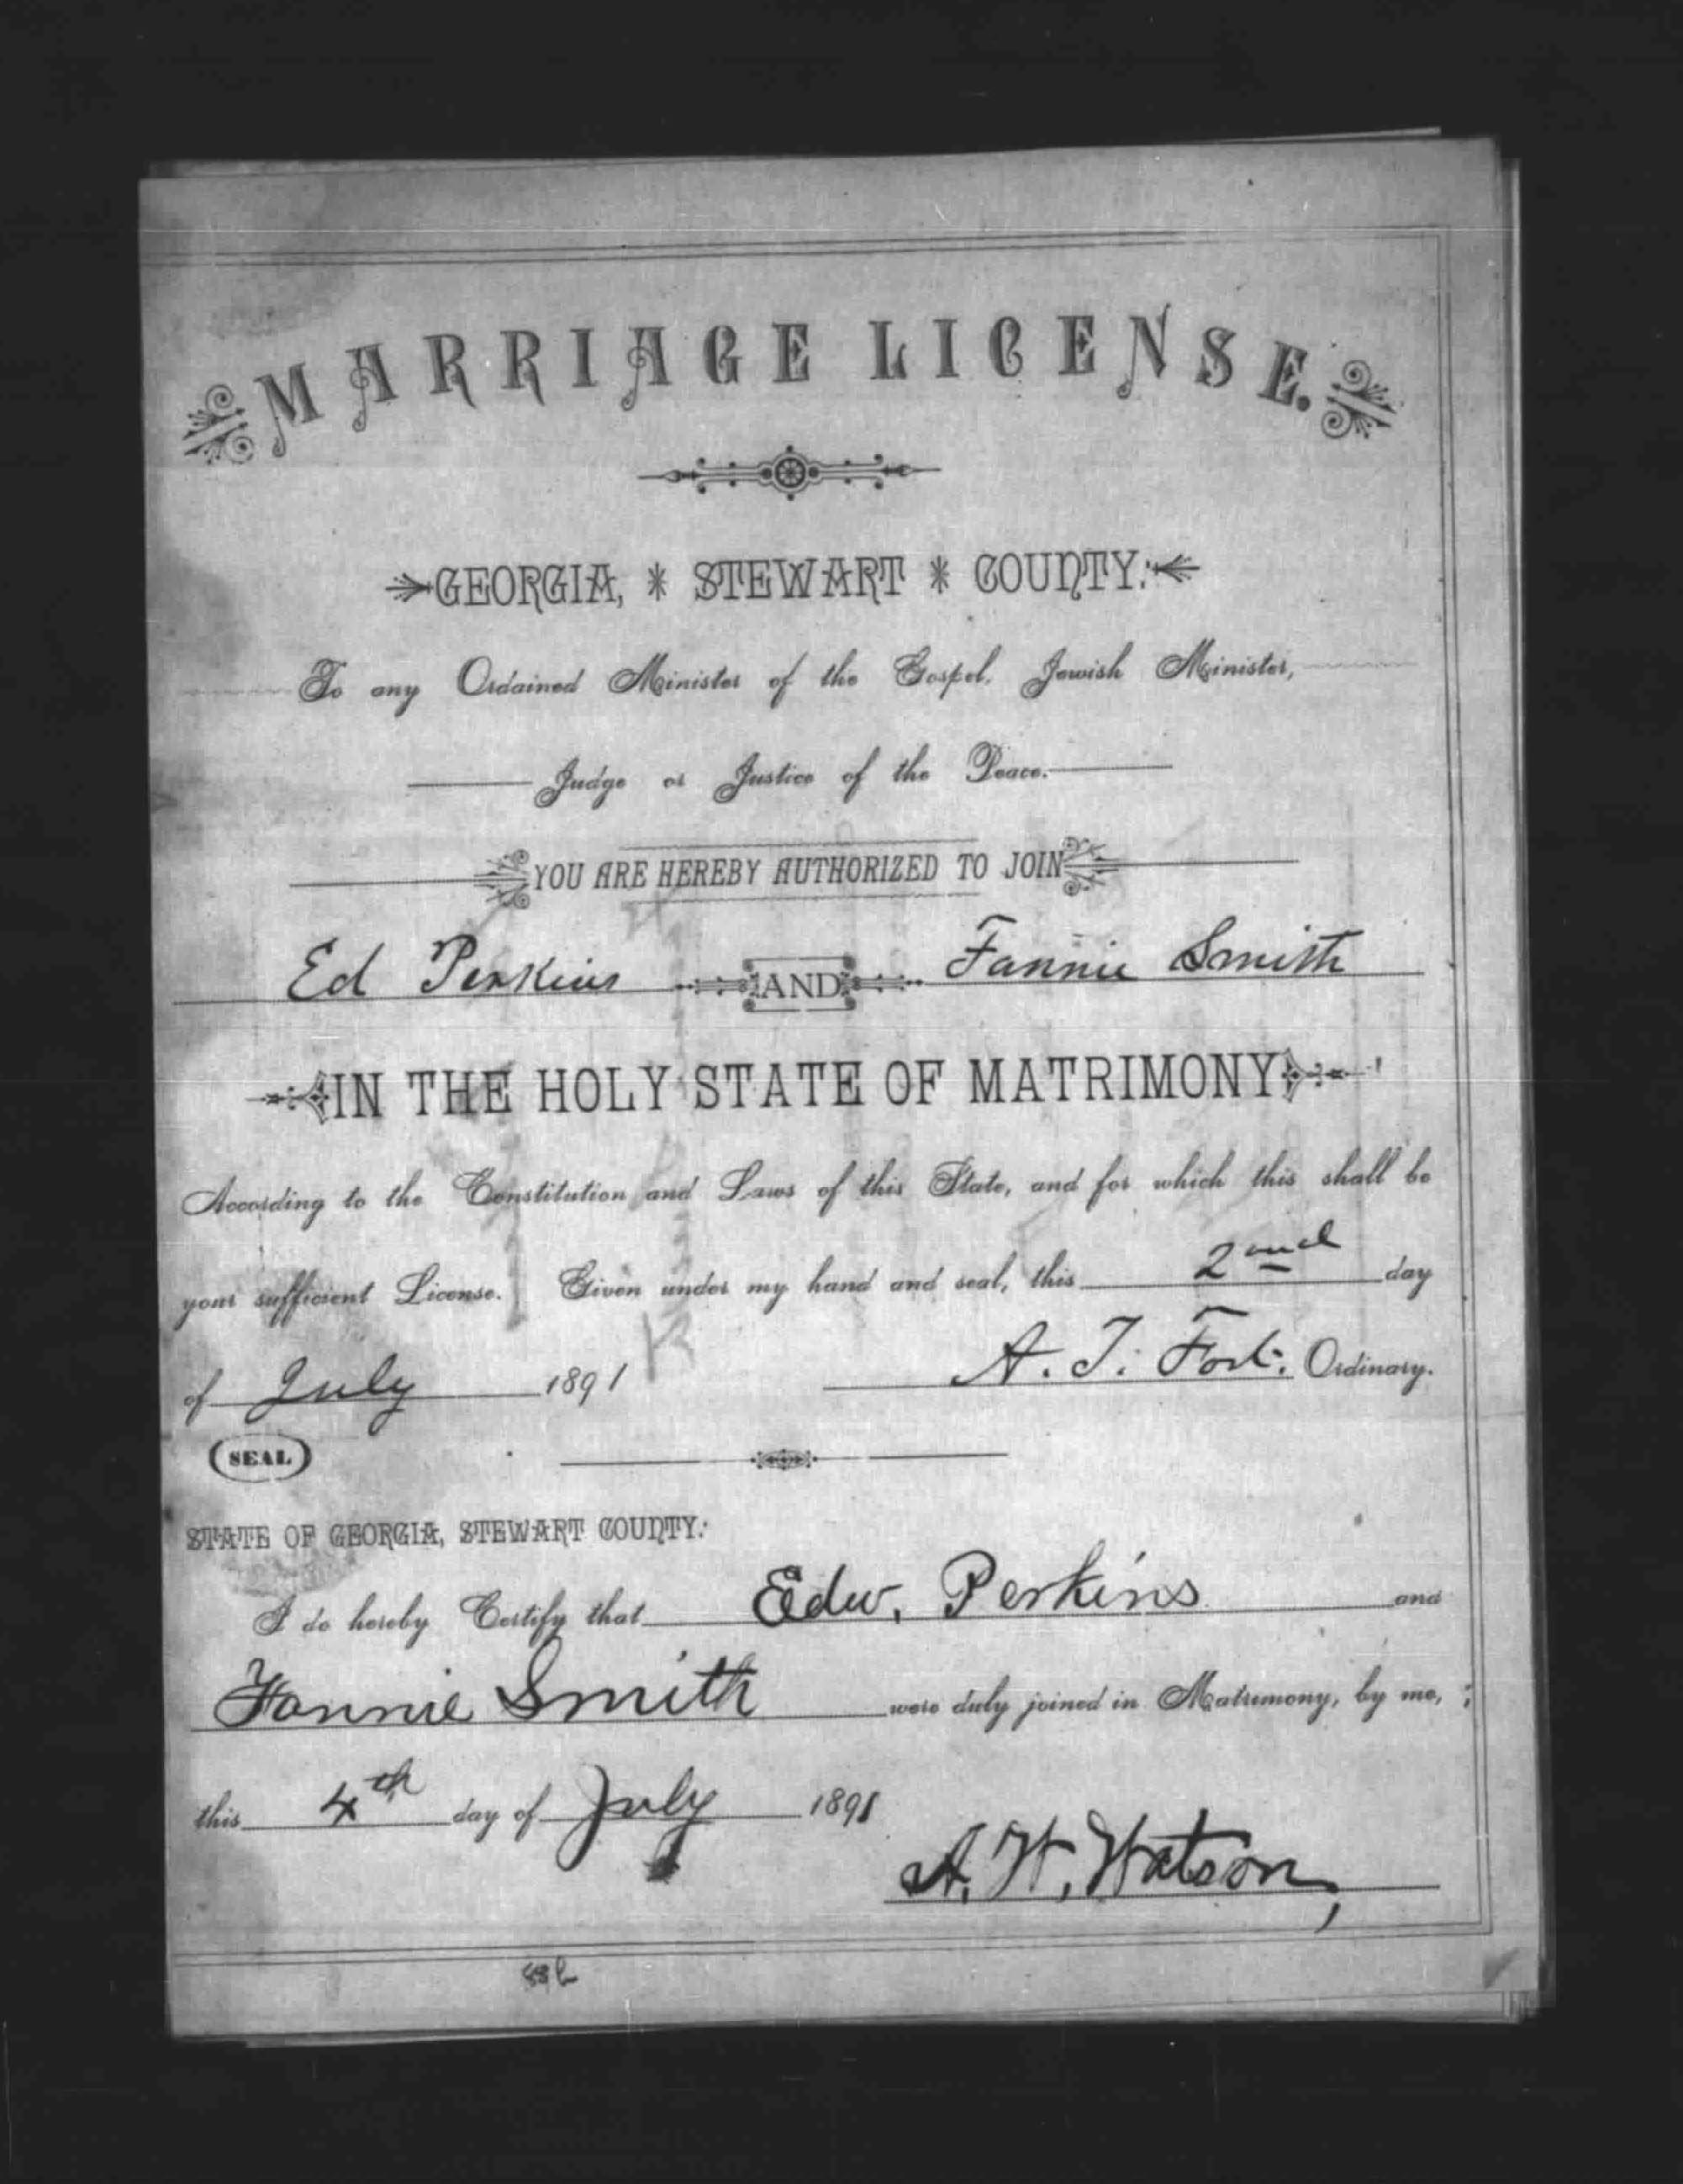 MARRIAGE LICENSE.
GEORGIA, * STEWART * COUNTY:
To any Ordained Minister of the Gospel, Jewish Minister,
Judge or Justice of the Peace.
YOU ARE HEREBY AUTHORIZED TO JOIN
Ed Perkins AND Fannie Smith
IN THE HOLY STATE OF MATRIMONY
According to the Constitution and Laws of this State, and for which this shall be
your sufficient License. Given under my hand and seal, this 2nd day
of July 1891 A. T. Fort. Ordinary.
(SEAL)
STATE OF GEORGIA, STEWART COUNTY:
I do hereby Certify that Edw. Perkins and
Fannie Smith were duly joined in Matrimony, by me,
this 4th day of July 1891
A. W. Watson,